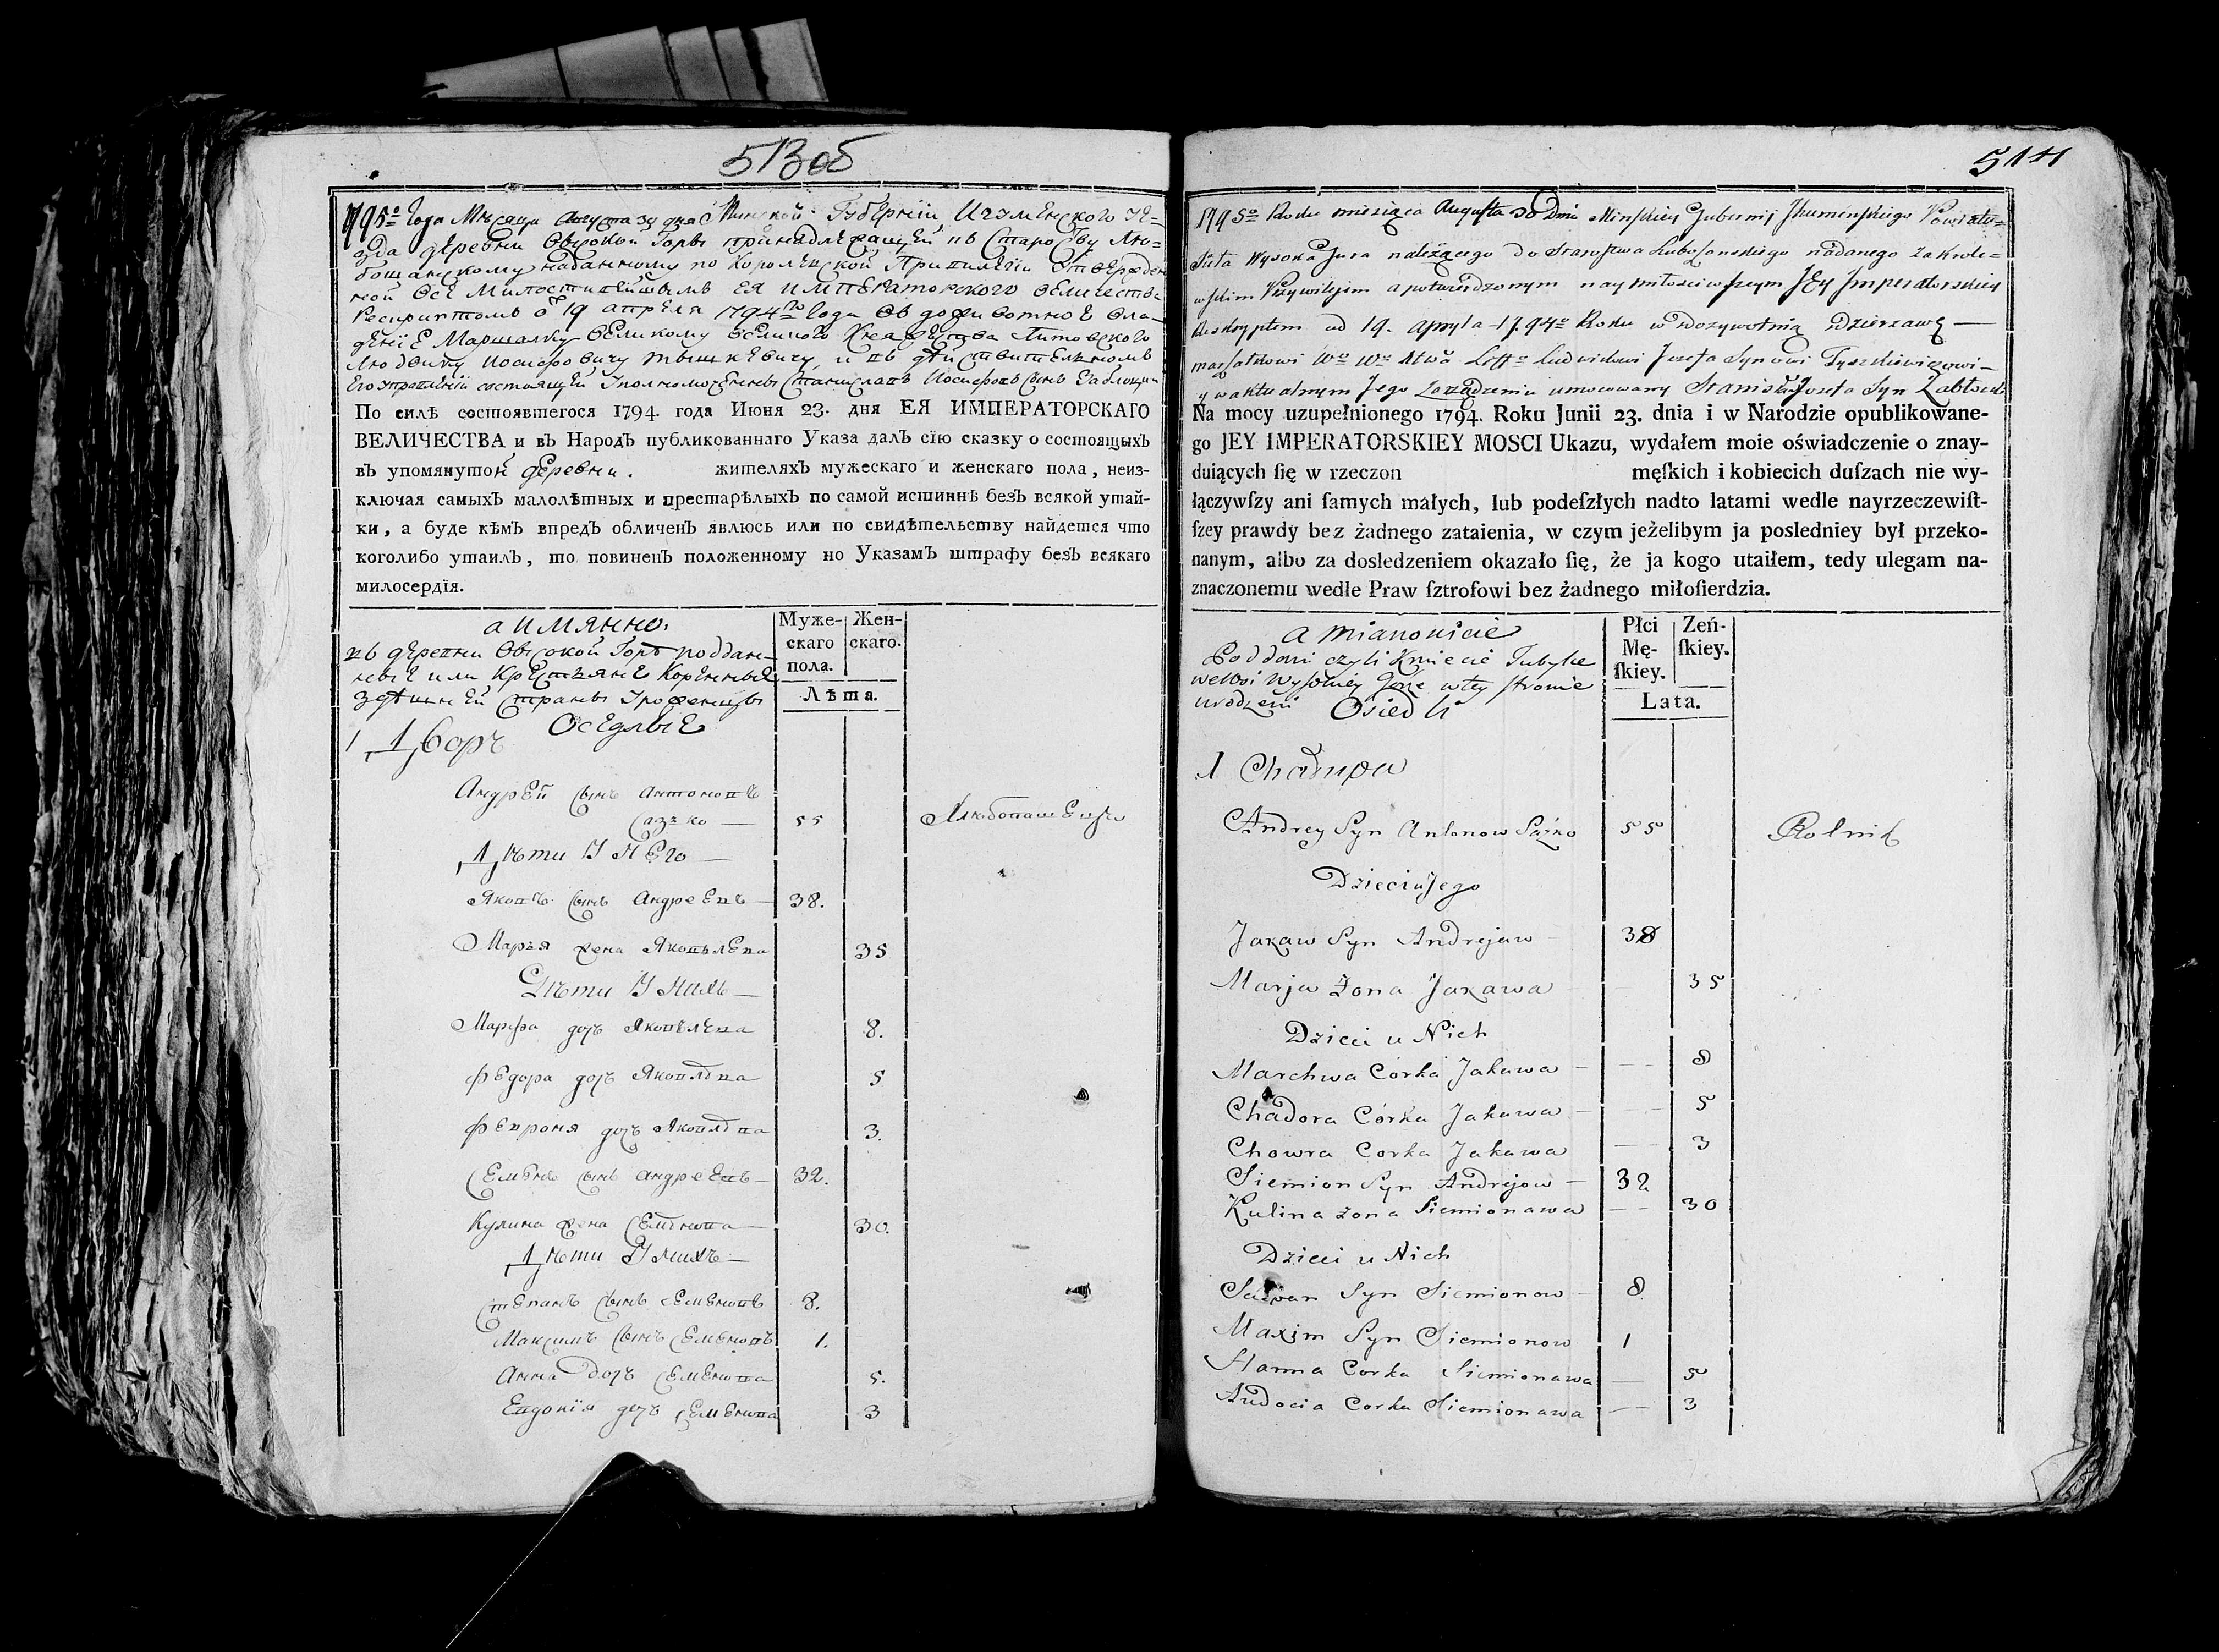 513об
1795го Года Мѣсяца Августа 30 дня Минской Губерніи Игуменскаго уѣ=
зда деревни Высокой Горы принадлежащей къ Староству Лю=
бошанскому наданному по Королевской Привилегіи Утвержден
ной Всемилостивейшымъ ЕЯ ИМПЕРАТОРСКОГО Величества
Рескриптомъ 19 апреля 1794го Года Въ дожывотное Вла=
деніе Маршалку Великому Великого Княжества Литовского
Людвику Иосифовичу тышкевичу и въ действительномъ
Его управленіи состоящей Уполномоченны Станиславъ Иосифовъ сынъ Заблоцки
По силѣ состоявшегося 1794. года Июня 23. дня ЕЯ ИМПЕРАТОРСКАГО
ВЕЛИЧЕСТВА и въ Народъ публикованнаго Указа далъ сїю сказку о состоящыхъ
въ упомянутой деревни. жителяхъ мужескаго и женскаго пола, неиз-
ключая самыхъ малолѣтныхъ и престарѣлыхъ по самой истиннѣ безъ всякой утай-
ки, а буде кѣмъ впредъ обличенъ явлюсь или по свидѣтельству найдется что
коголибо утаилъ, то повиненъ положенному по Указамъ штрафу безъ всякаго
милосердїя.
а имянно.
въ деревни Высокой Горѣ поддан-
ные или Крестьяне Коренные
здѣшней Страны Уроженцы
Оседлые
Муже-
скаго
пола.
Жен-
скаго.
Лѣта.
1 Дворъ
Андрей сынъ Антоновъ
Сазко — 55 Хлебопашецъ
Дѣти У Него —
Яковъ сынъ Андреевъ — 38.
Марья жена Яковлева 35
Дѣти У Нихъ —
Марфа дочь Яковлева 8.
Федора дочь Яковлева 5
Февроня дочь Яковлева 3.
Семенъ сынъ Андреевъ — 32.
Кулина жена Семенова 30.
Дѣти У Нихъ —
Степанъ сынъ Семеновъ 8.
Максимъ сынъ Семеновъ 1.
Анна дочь Семенова 5.
Евдокія дочь Семенова 3
514
1795o Roku miesiąca Augusta 30 Dnia Minskiey Gubernij Jhumenskiego Powiatu=
Siła Wysoka Gura należącego do Starostwa Luboszanskiego nadanego za Krole=
wskim Przywilejem a potwierdzonym nay miłosciwszym JEy Jmperatorskiey
Reskryptem od 19. apryla 1794o Roku w dozywotnią Dzierzawę —
marszałkowi Wo Wo Ltwa Ludwikowi Jozefa Synowi Tyszkiewiczowi —
y w aktualnym Jego Zarządzeniu umocowany Stanisław Jozefa Syn Zabłocki
Na mocy uzupełnionego 1794. Roku Junii 23. dnia i w Narodzie opublikowane-
go JEY IMPERATORSKIEY MOSCI Ukazu, wydałem moie oświadczenie o znay-
duiących ſię w rzeczon męſkich i kobiecich duſzach nie wy-
łączywſzy ani ſamych małych, lub podeſzłych nadto latami wedle nayrzeczewiſt-
ſzey prawdy bez żadnego zataienia, w czym jeżelibym ja posledniey był przeko-
nanym, albo za dosledzeniem okazało ſię, że ja kogo utaiłem, tedy ulegam na-
znaczonemu wedle Praw ſztrofowi bez żadnego miłoſierdzia.
a mianowicie
Poddani czyli Kmiecie Tubylce
we Wsi Wysokiey Gorze w tey stronie
urodzeni Osiedli
Płci
Mę-
ſkiey.
Zeń-
ſkiey.
Lata.
1 Chałupa
Andrey Syn Antonow Sazko 55 Rolnik
Dzieci u Jego
Jakaw Syn Andrejaw — 38
Marja Żona Jakawa 35
Dzieci u Nich
Marchwa Corka Jakawa — 8
Chadora Córka Jakawa — 5
Chowra Corka Jakawa — 3
Siemion Syn Andrejow — 32
Kulina żona Siemionawa — 30
Dzieci u Nich
Sciepan Syn Siemionow — 8
Maxim Syn Siemionow 1
Hanna Corka Siemionawa — 5
Audocia Corka Siemionawa — 3